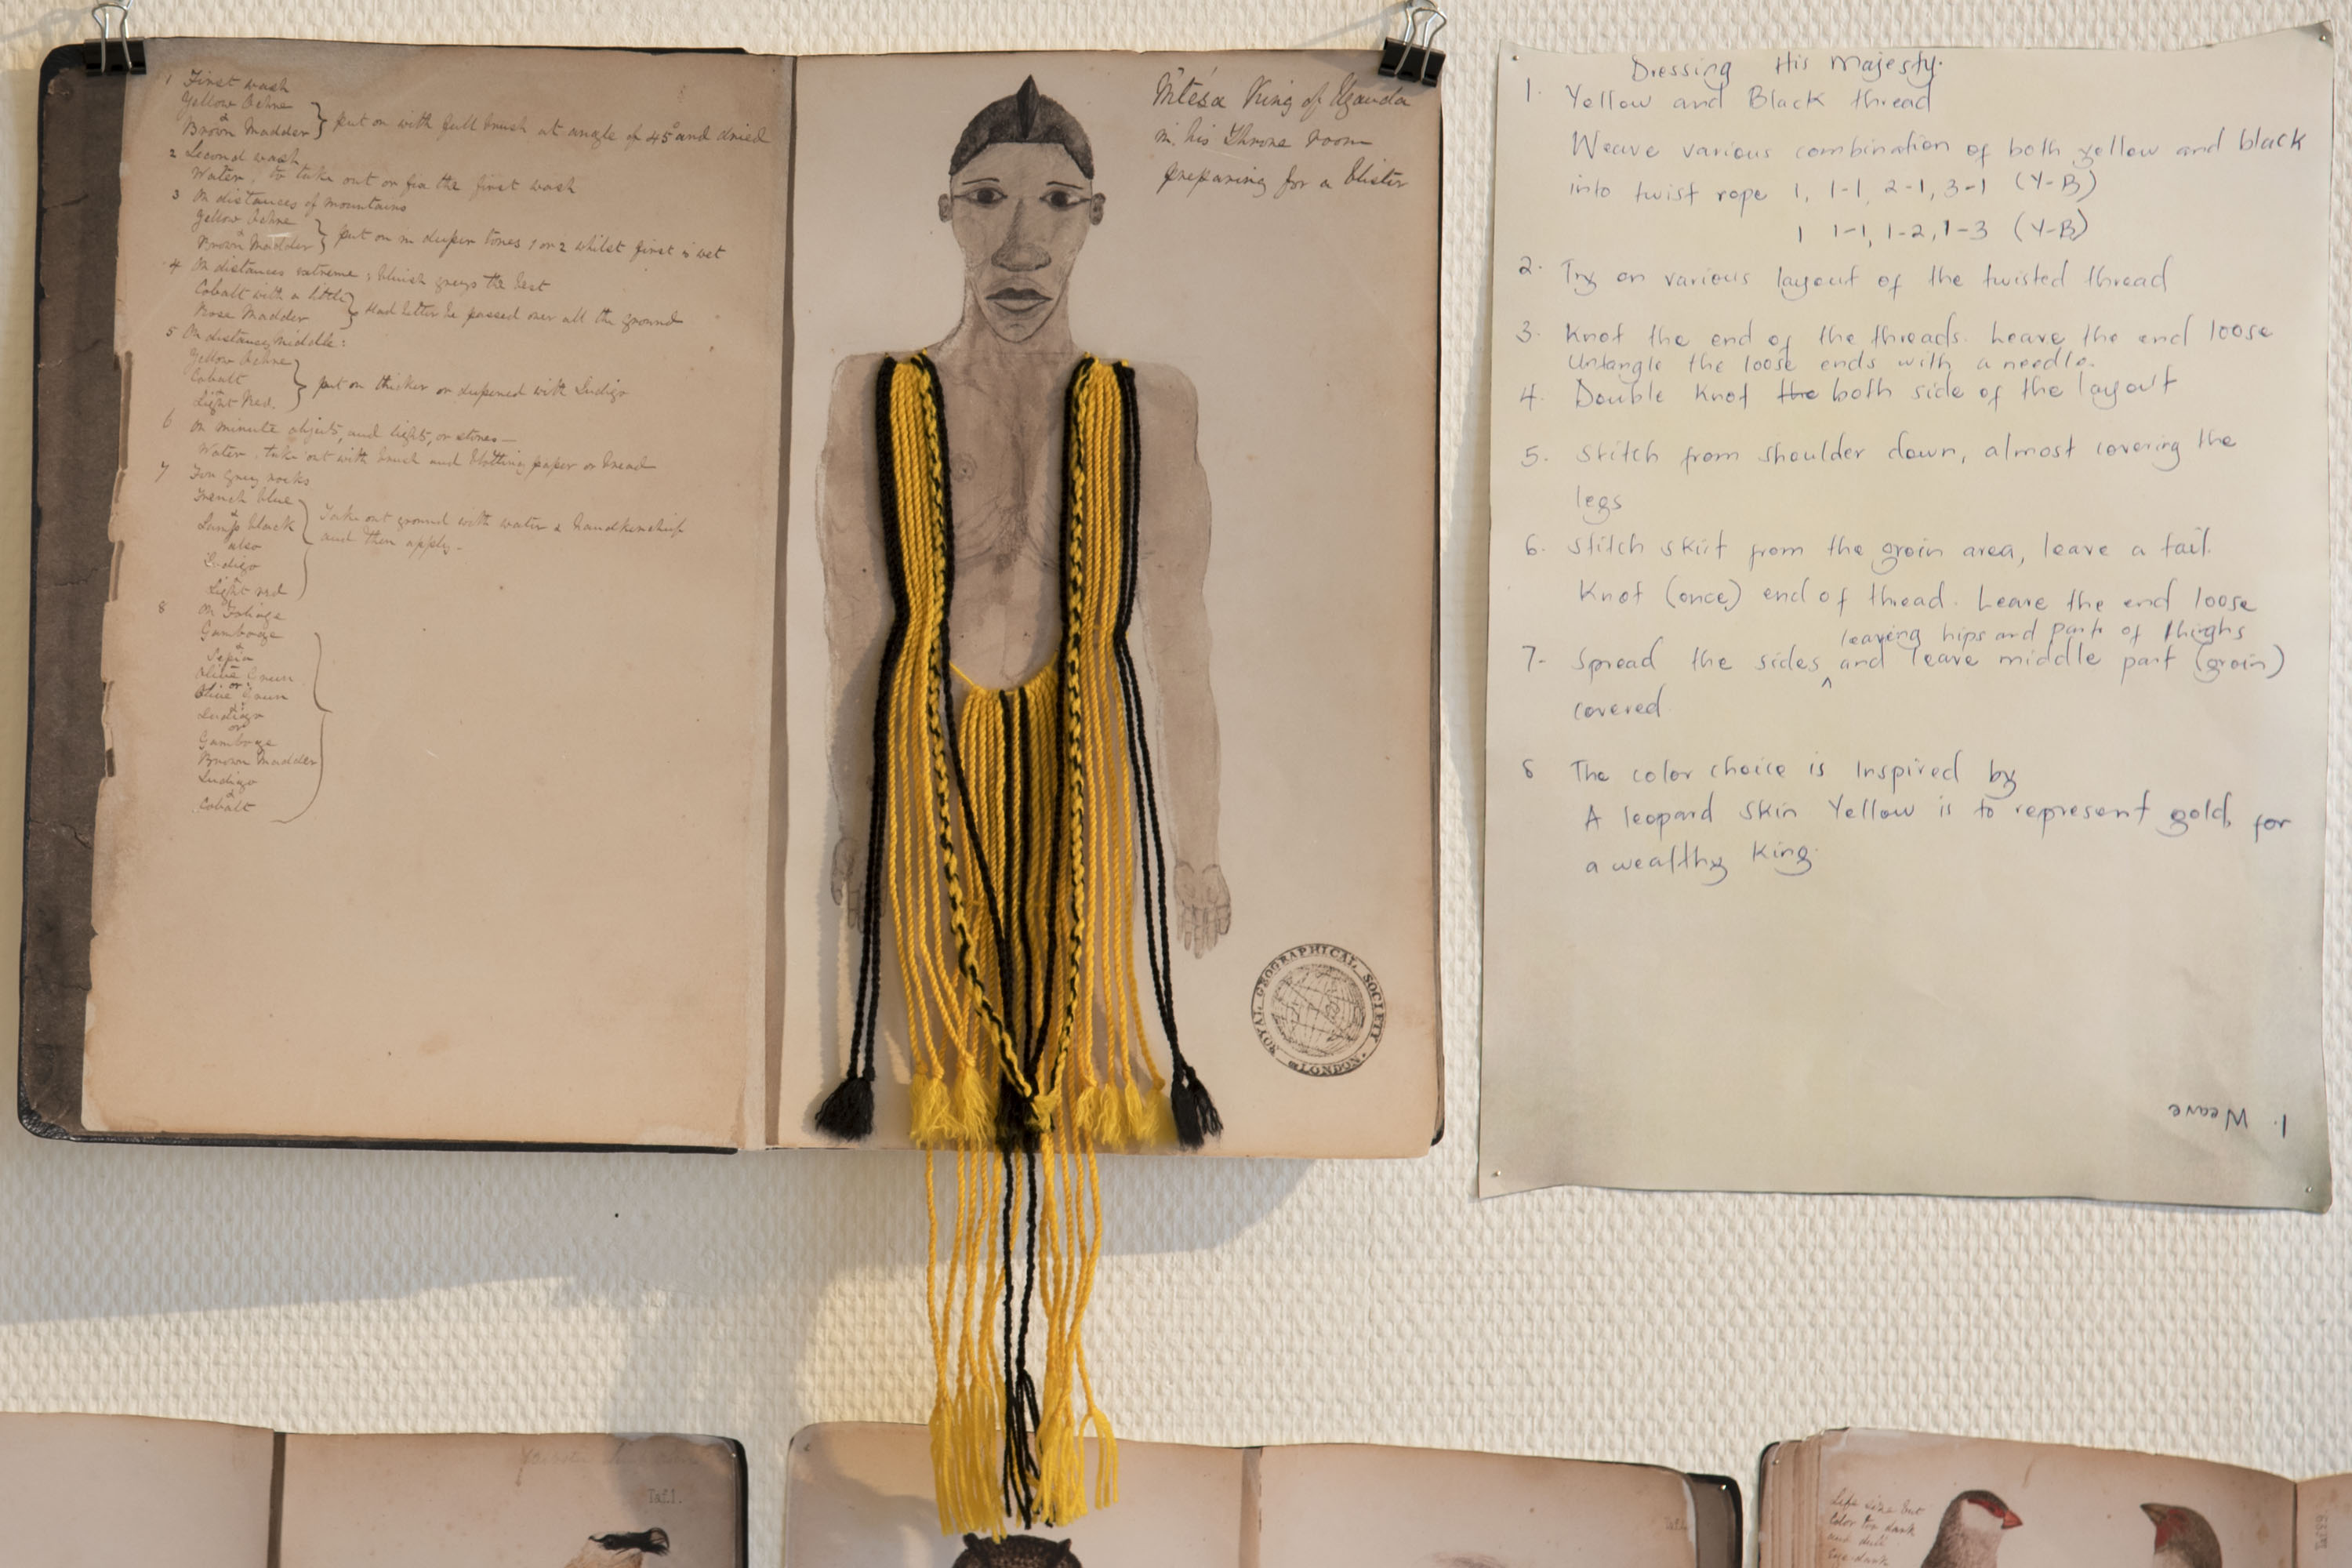 1 First wash
Yellow Ochre
&
Brown Madder } put on with full brush at angle of 45° and dried
2 Second wash
Water, to take out or fix the first wash
3 On distances of mountains
Yellow Ochre
&
Brown Madder } put on in deeper tones 1 or 2 whilst first is wet
4 On distances extreme; bluish greys the best
Cobalt with a little
Rose Madder } Had better be passed over all the ground
5 On distance, middle:
Yellow Ochre
Cobalt
Light Red. } put on thicker or deepened with Indigo
6 On minute objects, and lights, or stones—
Water, take out with brush and blotting paper or bread
7 For grey rocks
French blue
&
Lamp black } Take out ground with water & handkerchief
also and then apply.
Indigo
&
Light red
8 On Foliage
Gamboge
&
Sepia
Olive Green
or
Olive Green
&
Indigo
or
Gamboge
Brown Madder
Indigo
&
Cobalt
M'tésa King of Uganda
in his Throne room
preparing for a blister
ROYAL GEOGRAPHICAL SOCIETY
LONDON
Dressing His Majesty.
1. Yellow and Black thread
Weave various combination of both yellow and black
into twist rope 1, 1-1, 2-1, 3-1 (Y-B)
1 1-1, 1-2, 1-3 (Y-B)
2. Try on various layout of the twisted thread
3. Knot the end of the threads. Leave the end loose
Untangle the loose ends with a needle.
4. Double knot the both side of the layout
5. Stitch from shoulder down, almost covering the
legs
6. Stitch skirt from the groin area, leave a tail.
Knot (once) end of thread. Leave the end loose
leaving hips and part of thighs
7- Spread the sides ^ and leave middle part (groin)
covered
8 The color choice is Inspired by
A leopard skin Yellow is to represent gold, for
a wealthy King.
1. Weave
Taf.1.
Life size but
Color too dark
and dull
Eye dark